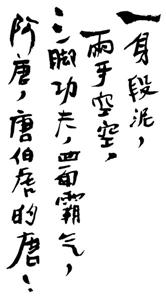 一身段泥，
两手空空，
三脚功夫，四面霸气，
阿唐，唐伯唐的唐！